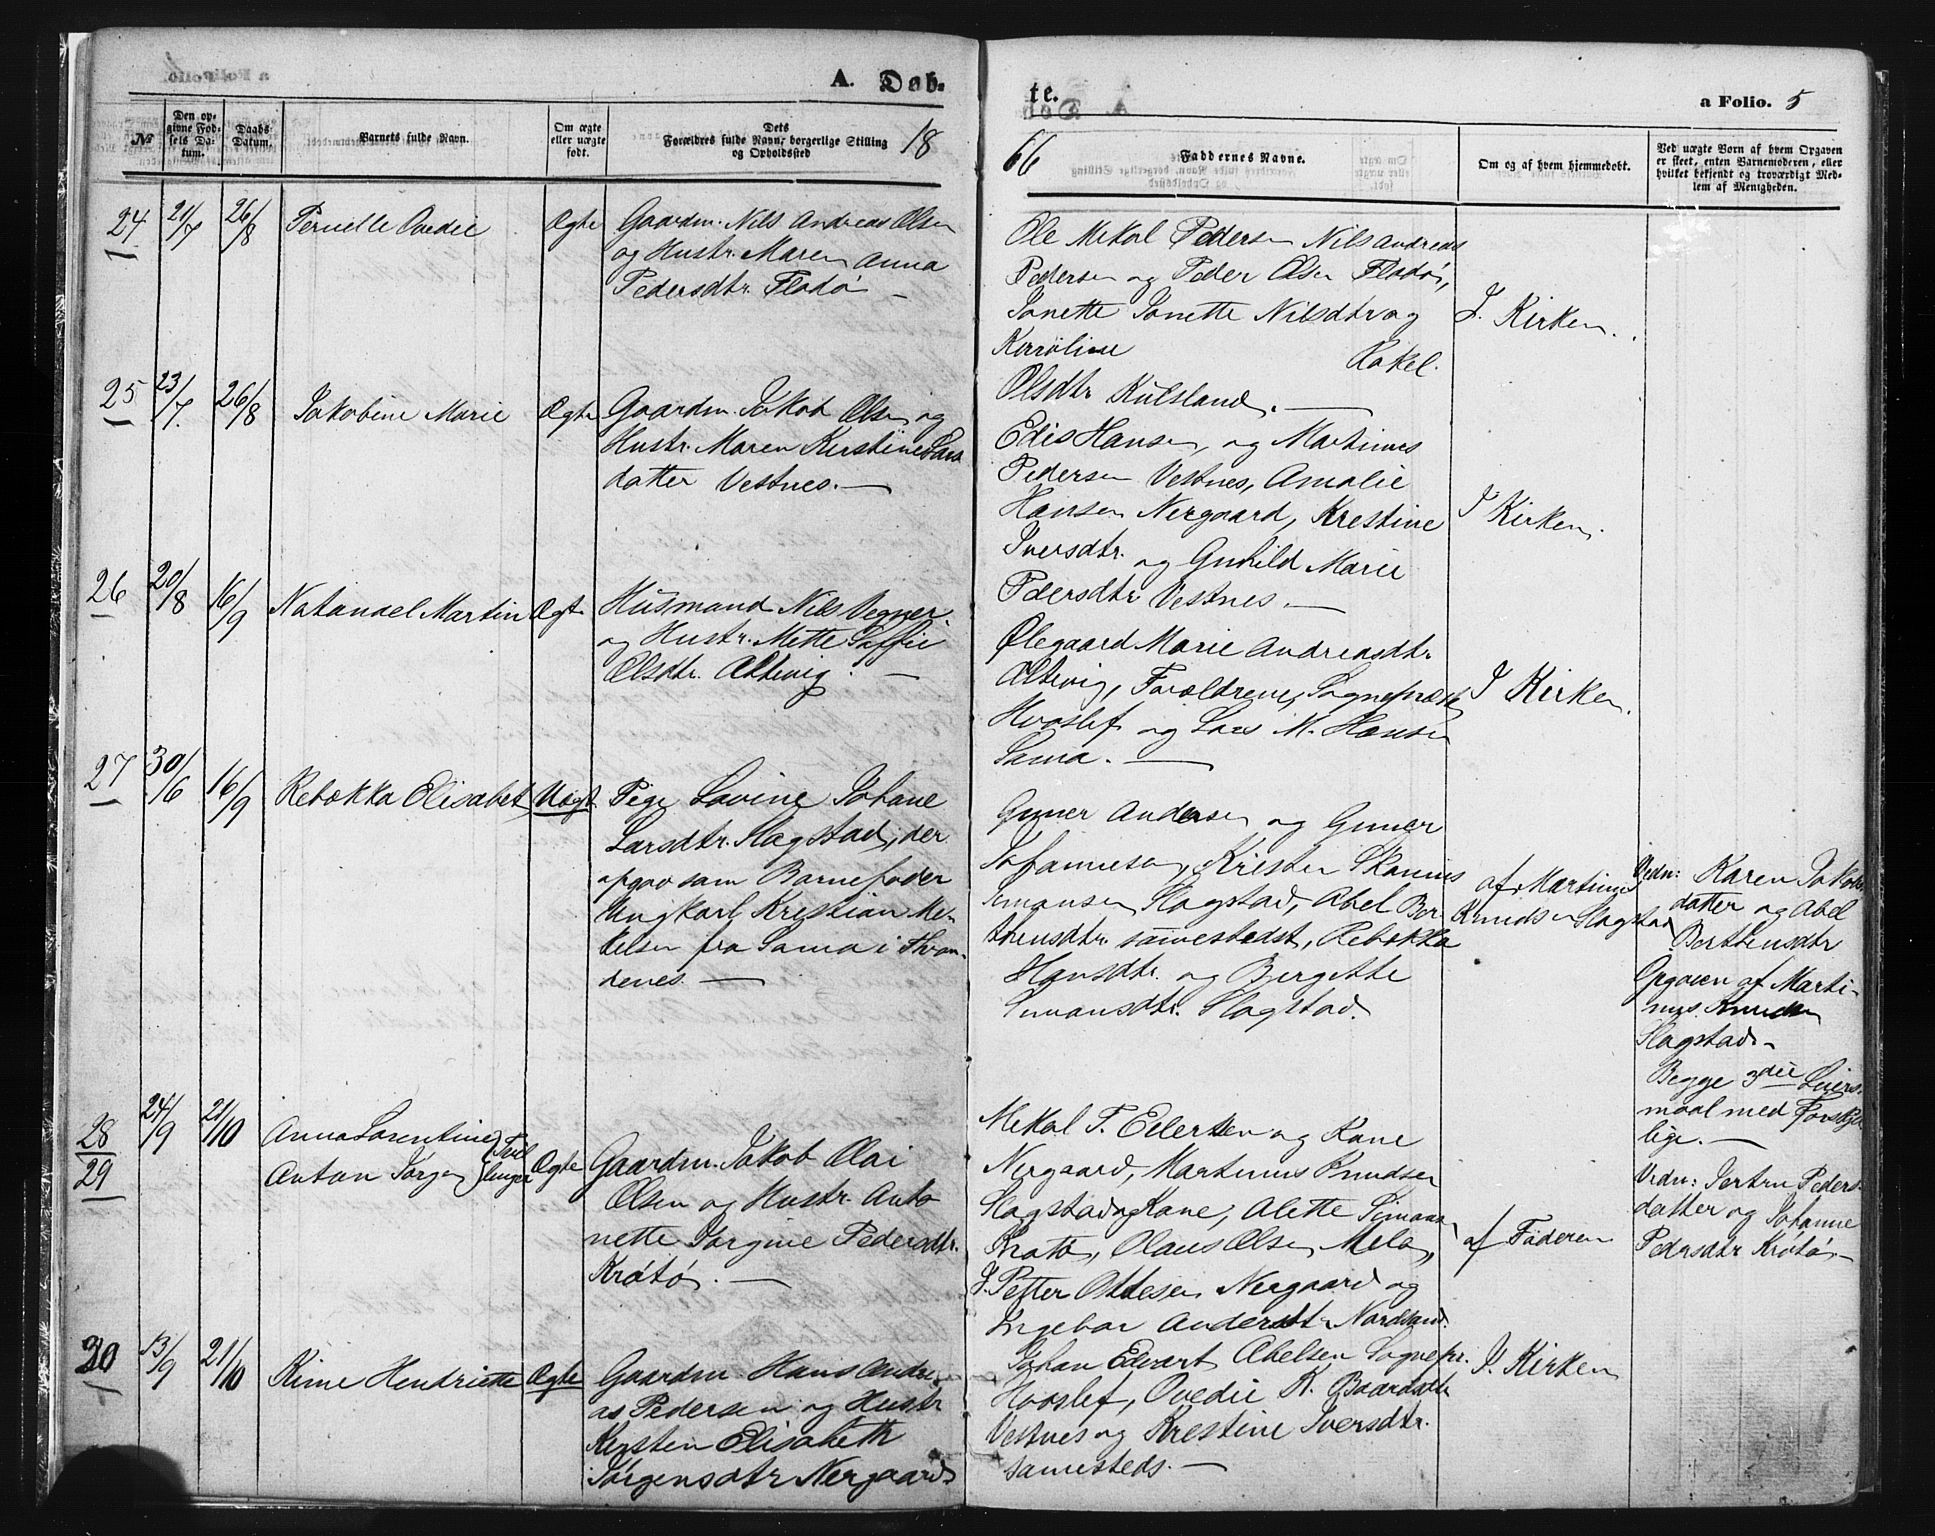 A. Døb-
te.
a Folio. 5
№
Den opgivne Fødsels Datum.
Daabs Datum.
Barnets fulde Navn.
Om ægte eller uægte født.
Dets Forældres fulde Navn, borgerlige Stilling og Opholdssted
18
66
Faddernes Navne.
Om og af hvem hjemmedøbt.
Ved uægte Børn af hvem Opgaven er skeet, enten Barnemoderen, eller hvilket bekjendt og troværdigt Medlem af Menigheden.
24
21/7
26/8
Pernelle Ovedie
Ægte
Gaardm. Nils Andreas Olsen
og Hustr. Maren Anna
Pedersdtr. Flodø
Ole Mekal Pedersen Nils Andreas
Pedersen og Peder Olsen Flodø,
Janette Janette Nilsdtr og
Karoline Rakel.
Olsdtr Kulsland.
I. Kirken.
25
23/7.
26/8
Jakobine Marie
Ægte
Gaardm. Jakob Olsen og
Hustr. Maren Kirstine Lars
datter Vestnes.
Edis Hansen, og Martinus
Pedersen Vestnes, Amalie
Hansen Nergaard, Krestine
Iversdtr. og Gunhild Marie
Pdersdtr Vestnes.
I Kirken.
26
20/8
16/9
Natanael Martin
Ægte
Husmand Nils Vegner
og Hustr. Mette Saffie
Olsdtr. Altevig.
Ølegaard Marie Andreasdtr.
Altevig, Forældrene, Sognepræst
Hvoslef og Lars M. Hansen
Sama.
I Kirken.
27
30/6
16/9
Rebekka Elisabet
Uægt
Pige Lovine Johane
Larsdtr. Slagstad, der
opgav som Barnefader
Ungkarl Krestian Me-
kelsen fra Sama i Thron-
denes.
Guner Andersen og Guner
Johannesen, Krister
Simonsen Slagstad, Abel Ber-
theusdtr. sammestedst, Rebekka
Hansdtr. og Bergette
Simonsdtr. Slagstad.
af Martinus
Knudsen Slagstad
Vedn: Karen Jakobs
datter og Abel
Bertheusdtr
Opgaven af Marti-
nus Knudsen
Slagstad.
Begge 3die Leiers-
maal med forskjel
lige.
28
29
24/9
21/10
Anna Lorentine
Anton Jørgen } Tvil
linger
Ægte
Gaardm. Jakob Olai
Olsen og Hustr. Anto
nette Jørgine Pedersdtr.
Krøtø.
Mekal F. Edersen og Kone
Nergaard, Martinus Knudsen
Slagstad og Kone, Alette Simons
Olaus Olsen Mela,
J. Petter Ottesen Nergaard og
Ingebor Andersdtr Nordsand.
af Faderen
Vidn: Jertru Peders-
datter og Johanne
Pedersdtr Krøtø.
30
13/9
21/10
Rime Hendriette
Ægte
Gaardm Hans Andre
as Pedersen og Hustr
Kersten Elisabeth
Jørgensdtr Nergaard
Johan Edvart Abelsen Sognepr.
Hvoslef, Ovedie K. Baardsdtr
Vestnes og Krestine Iversdtr.
samesteds.
I. Kirken